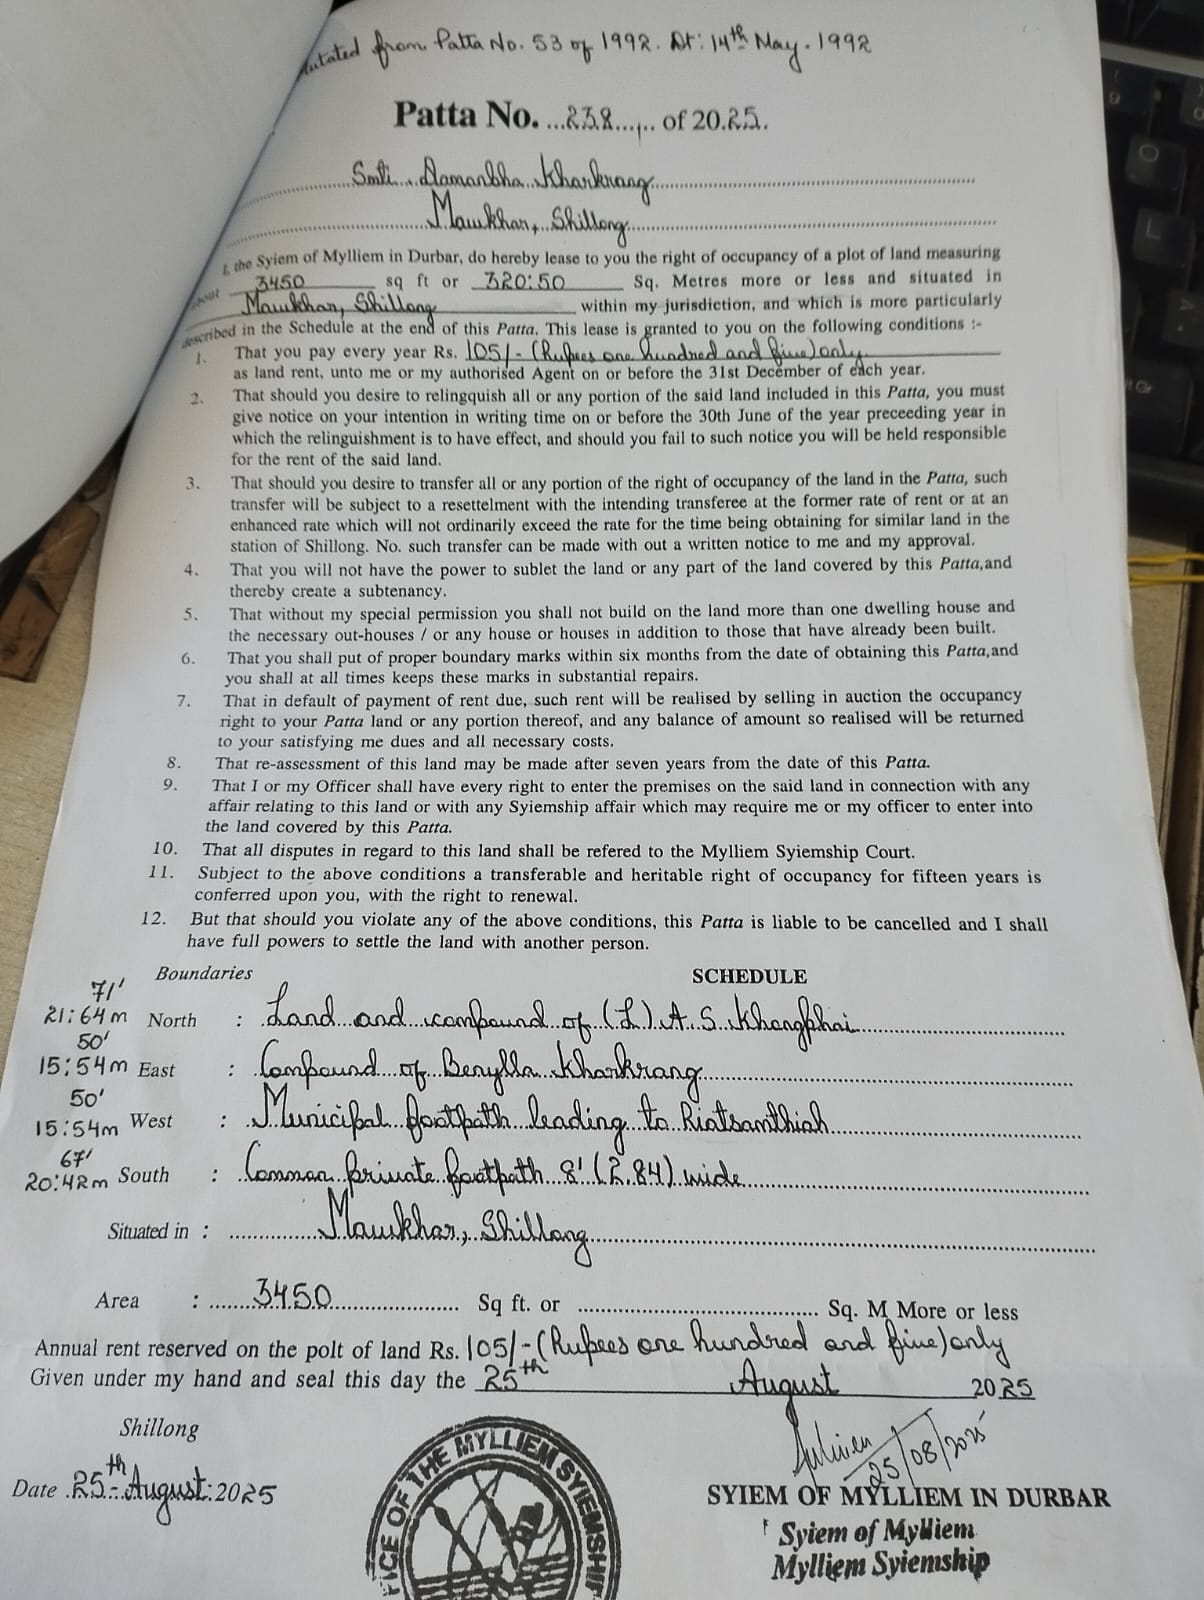 Mutated from Patta No. 53 of 1992. Dt: 14th May. 1992
Patta No. ...238...,.. of 2025.
Smti. Damanbha Kharkrang
Mawkhar, Shillong
I, the Syiem of Mylliem in Durbar, do hereby lease to you the right of occupancy of a plot of land measuring
about 3450 sq ft or 320:50 Sq. Metres more or less and situated in
Mawkhar, Shillong within my jurisdiction, and which is more particularly
described in the Schedule at the end of this Patta. This lease is granted to you on the following conditions :-
1. That you pay every year Rs. 105/- (Rupees one hundred and five) only
as land rent, unto me or my authorised Agent on or before the 31st December of each year.
2. That should you desire to relingquish all or any portion of the said land included in this Patta, you must
give notice on your intention in writing time on or before the 30th June of the year preceeding year in
which the relinguishment is to have effect, and should you fail to such notice you will be held responsible
for the rent of the said land.
3. That should you desire to transfer all or any portion of the right of occupancy of the land in the Patta, such
transfer will be subject to a resettelment with the intending transferee at the former rate of rent or at an
enhanced rate which will not ordinarily exceed the rate for the time being obtaining for similar land in the
station of Shillong. No. such transfer can be made with out a written notice to me and my approval.
4. That you will not have the power to sublet the land or any part of the land covered by this Patta,and
thereby create a subtenancy.
5. That without my special permission you shall not build on the land more than one dwelling house and
the necessary out-houses / or any house or houses in addition to those that have already been built.
6. That you shall put of proper boundary marks within six months from the date of obtaining this Patta,and
you shall at all times keeps these marks in substantial repairs.
7. That in default of payment of rent due, such rent will be realised by selling in auction the occupancy
right to your Patta land or any portion thereof, and any balance of amount so realised will be returned
to your satisfying me dues and all necessary costs.
8. That re-assessment of this land may be made after seven years from the date of this Patta.
9. That I or my Officer shall have every right to enter the premises on the said land in connection with any
affair relating to this land or with any Syiemship affair which may require me or my officer to enter into
the land covered by this Patta.
10. That all disputes in regard to this land shall be refered to the Mylliem Syiemship Court.
11. Subject to the above conditions a transferable and heritable right of occupancy for fifteen years is
conferred upon you, with the right to renewal.
12. But that should you violate any of the above conditions, this Patta is liable to be cancelled and I shall
have full powers to settle the land with another person.
Boundaries SCHEDULE
71'
21:64m North : Land and compound of (L) A. S. Khongphai
50'
15:54m East : Compound of Benylla Kharkrang
50'
15:54m West : Municipal footpath leading to Riatsamthiah
67'
20:42m South : Common private footpath 8' (2.84) wide
Situated in : Mawkhar, Shillong
Area : 3450 Sq ft. or Sq. M More or less
Annual rent reserved on the polt of land Rs. 105/- (Rupees one hundred and five) only
Given under my hand and seal this day the 25th August 2025
Shillong
Date 25th August: 2025
25/08/2025
SYIEM OF MYLLIEM IN DURBAR
Syiem of Mylliem
Mylliem Syiemship
OFFICE OF THE MYLLIEM SYIEMSHIP